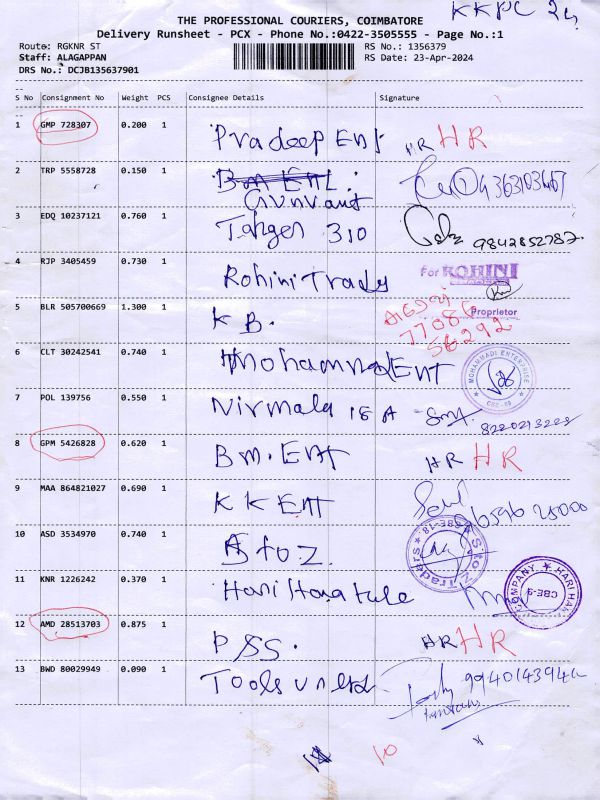 KKPC 24
THE PROFESSIONAL COURIERS, COIMBATORE
Delivery Runsheet - PCX - Phone No.:0422-3505555 - Page No.:1
Route: RGKNR ST RS No.: 1356379
Staff: ALAGAPPAN RS Date: 23-Apr-2024
DRS No.: DCJB135637901
S No Consignment No Weight PCS Consignee Details Signature
1 GMP 728307 0.200 1 Pradeep Ent HR HR
2 TRP 5558728 0.150 1
3 EDQ 10237121 0.760 1 310 9842852782
4 RJP 3405459 0.730 1 Rohini Trady For ROHINI
Proprietor
5 BLR 505700669 1.300 1 KB.
6 CLT 30242541 0.740 1 Mohammad ENT MOHAMMADI ENTERPRISE
7 POL 139756 0.550 1 Nirmala 18 A
8 GPM 5426828 0.620 1 Bm. Ent HR HR
9 MAA 864821027 0.690 1 KK Ent
10 ASD 3534970 0.740 1 A to Z. CBE-18
11 KNR 1226242 0.370 1 COMPANY HARI HAR CBE-9
12 AMD 28513703 0.875 1 PSS. HR HR
13 BWD 80029949 0.090 1 Tools
10